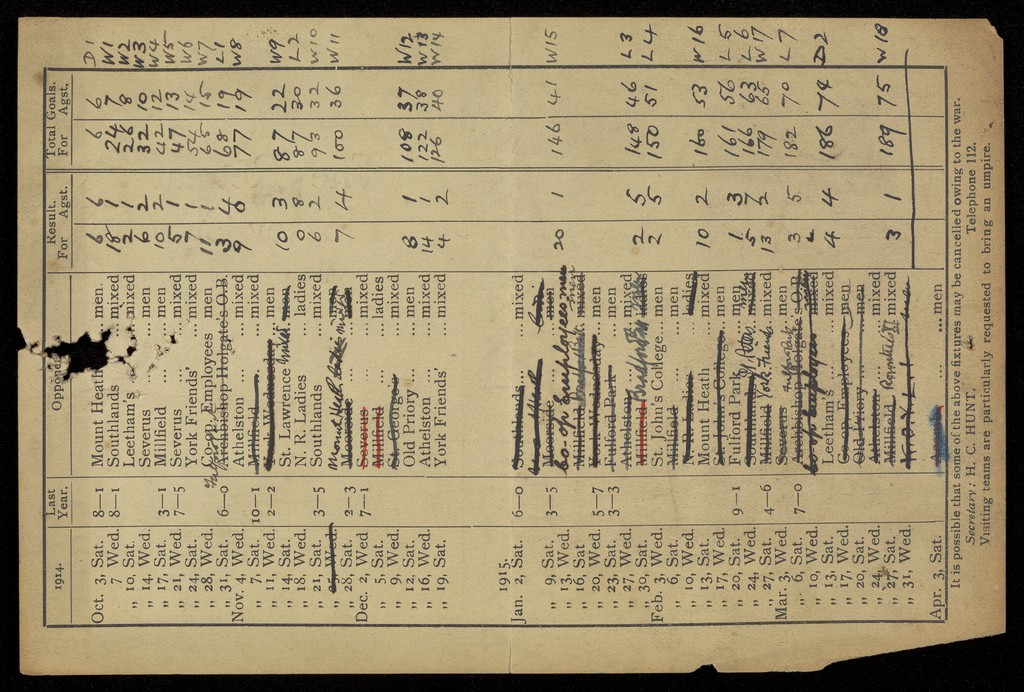 1914. Last Year. Opponents Result. For Agst. Total Goals. For Agst.
Oct. 3, Sat. 8—1 Mount Heath ... men. 6 6 6 6 D1
„ 7 Wed. 8—1 Southlands ... mixed 18 1 24 7 W1
„ 10, Sat. Leetham's ... mixed 2 1 26 8 W2
„ 14, Wed. Severus ... men 6 2 32 10 W3
„ 17, Sat. 3—1 Millfield ... men 10 2 42 12 W4
„ 21, Wed. 7—5 Severus ... mixed 5 1 47 13 W5
„ 24, Sat. York Friends' ... mixed 7 1 54 14 W6
„ 28, Wed. Co-op. Employees men 11 1 65 15 W7
„ 31, Sat. 6—0 Archbishop Holgate's O.B. 3 4 68 19 L1
Nov. 4, Wed. Athelston ... mixed 9 0 77 19 W8
„ 7, Sat. 10—1 Millfield ... mixed
„ 11, Wed. 2—2 York Wednesday men
„ 14, Sat. St. Lawrence mixed men 10 3 87 22 W9
„ 18, Wed. N. R. Ladies ... ladies 0 8 87 30 L2
„ 21, Sat. 3—5 Southlands ... men 6 2 93 32 W10
„ 25, Wed. Mount Heath mixed 7 4 100 36 W11
„ 28, Sat. 2—3 Moorside ... men
Dec. 2, Wed. 7—1 Severus ... mixed
„ 5, Sat. Millfield ... ladies
„ 9, Wed. St. George's
„ 12, Sat. Old Priory ... mixed 8 1 108 37 W12
„ 16, Wed. Athelston ... men 14 1 122 38 W13
„ 19, Sat. York Friends' ... mixed 4 2 126 40 W14
1915.
Jan. 2, Sat. 6—0 Southlands ... mixed
„ 9, Sat. 3—5 Moorside ... men
„ 13, Wed. Co-op Employees men 20 1 146 41 W15
„ 16, Sat. Millfield
„ 20, Wed. 5—7 York Wednesday ... men
„ 23, Sat. 3—3 Fulford Park ... men
„ 27, Wed. Athelston ... mixed 2 5 148 46 L3
„ 30, Sat. Millfield 2 5 150 51 L4
Feb. 3, Wed. St. John's College ... men
„ 6, Sat. Millfield ... mixed
„ 10, Wed. N. R. Ladies ... ladies
„ 13, Sat. Mount Heath ... mixed 10 2 160 53 W16
„ 17, Wed. St. John's College men
„ 20, Sat. 9—1 Fulford Park men 1 3 161 56 L5
„ 24, Wed. Southlands mixed 5 7 166 63 L6
„ 27, Sat. 4—6 Millfield York Friends mixed 13 2 179 65 W17
Mar. 3, Wed. Severus ... men 3 5 182 70 L7
„ 6, Sat. 7—0 Archbishop Holgate's O.B.
„ 10, Wed. Co-op Employees mixed 4 4 186 74 D2
„ 13, Sat. Leetham's ... men
„ 17, Wed. Co-op Employees men
„ 20, Sat. Old Priory ... men
„ 24, Wed. Athelston ... mixed
„ 27, Sat. Millfield ... mixed 3 1 189 75 W18
„ 31, Wed. K.O.Y.L.I. men
Apr. 3, Sat. ... men
It is possible that some of the above fixtures may be cancelled owing to the war.
Secretary: H. C. HUNT. Telephone 112.
Visiting teams are particularly requested to bring an umpire.